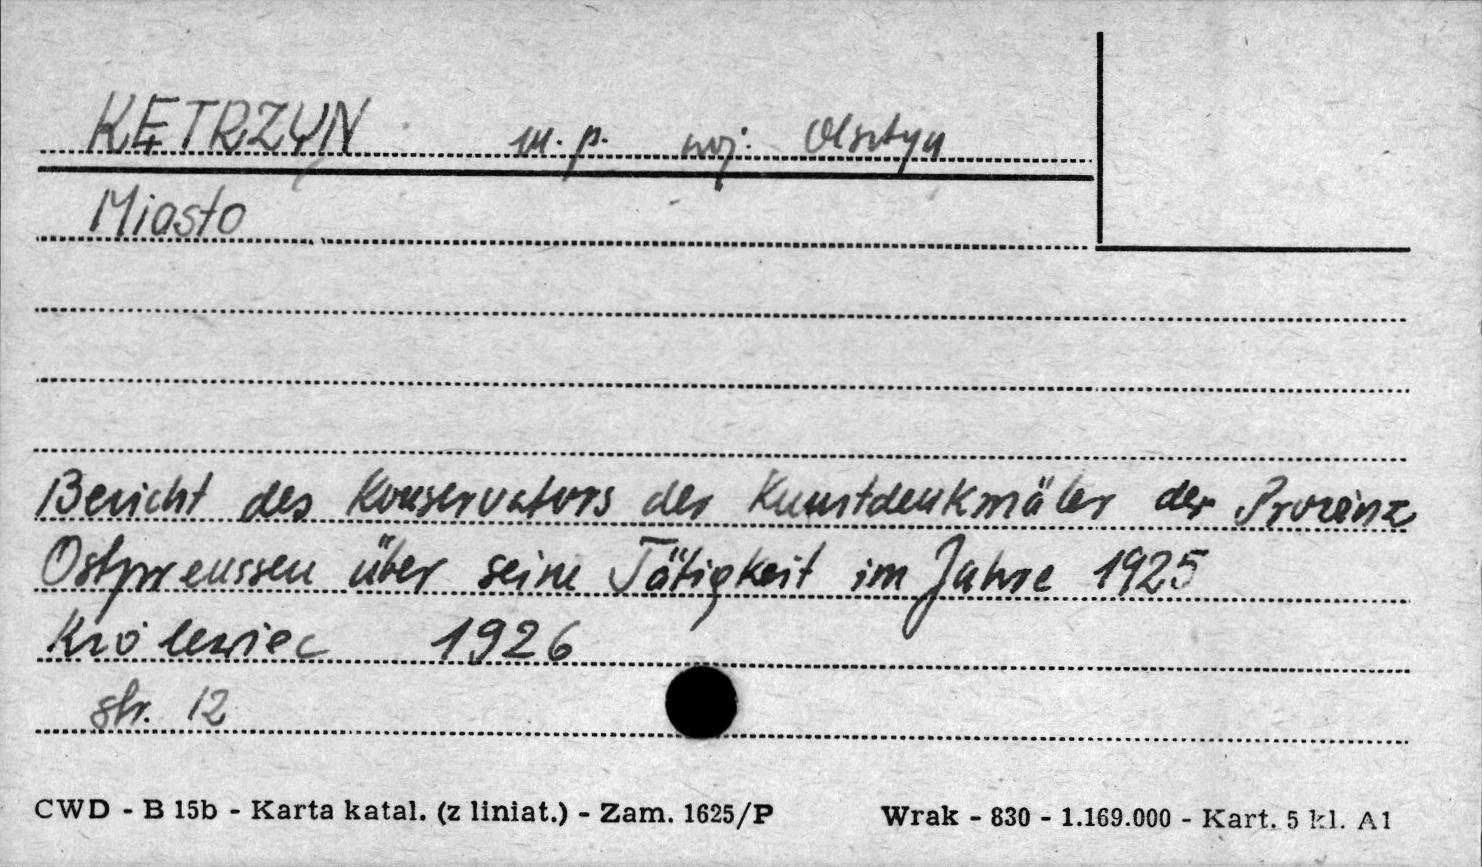 KĘTRZYN m. p. woj. Olsztyn
Miasto
Bericht des Konservators der Kunstdenkmäler der Provinz
Ostpreussen über seine Tätigkeit im Jahre 1925
Królewiec 1926
str. 12
CWD - B 15b - Karta katal. (z liniat.) - Zam. 1625/P Wrak - 830 - 1.169.000 - Kart. 5 kl. A1